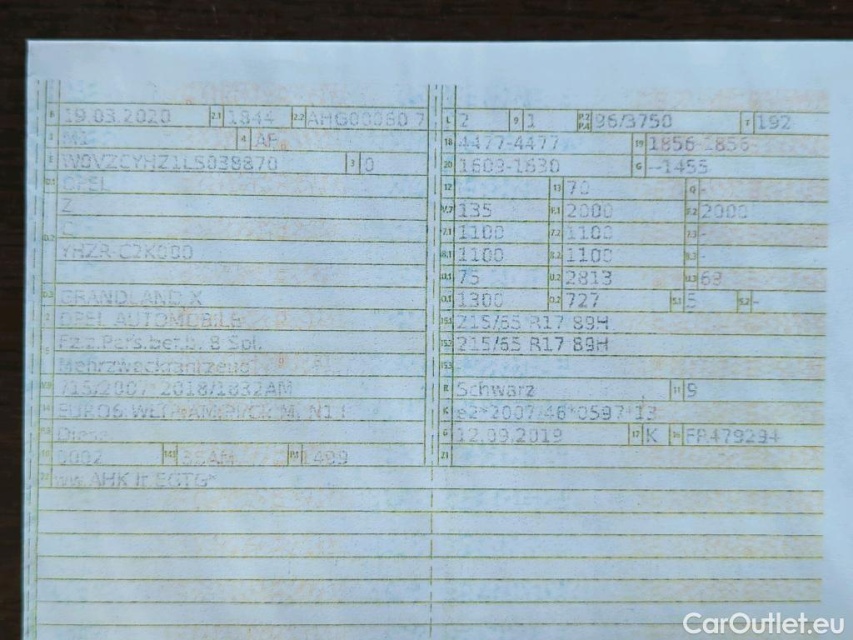 B 19.03.2020 2.1 1844 2.2 AHG00080 7
M1 4 AF
E W0VZCYHZ1LS038870 3 0
D.1 OPEL
Z
C
D.2 YHZR-C2K000
D.3 GRANDLAND X
2 OPEL AUTOMOBILE
5 Fz.z.Pers.bef.b. 8 Spl.
Mehrzweckfahrzeug
V.9 715/2007*2018/1832AM
14
Diesel
0002 14.1 36AM P.1 1499
22 ww.AHK lt.EGTG*
L 2 9 1 P.2 P.4 96/3750 T 192
18 4477-4477 19 1856-1856
20 1609-1630 G --1455
12 - 13 70 Q -
V.7 135 F.1 2000 F.2 2000
7.1 1100 7.2 1100 7.3 -
8.1 1100 8.2 1100 8.3 -
U.1 75 U.2 2813 U.3 68
O.1 1300 O.2 727 S.1 5 S.2 -
15.1 215/65 R17 89H
15.2 215/65 R17 89H
15.3
R Schwarz 11 9
K e2*2007/46*0597*13
6 12.09.2019 17 K 16 FR479294
21
CarOutlet.eu